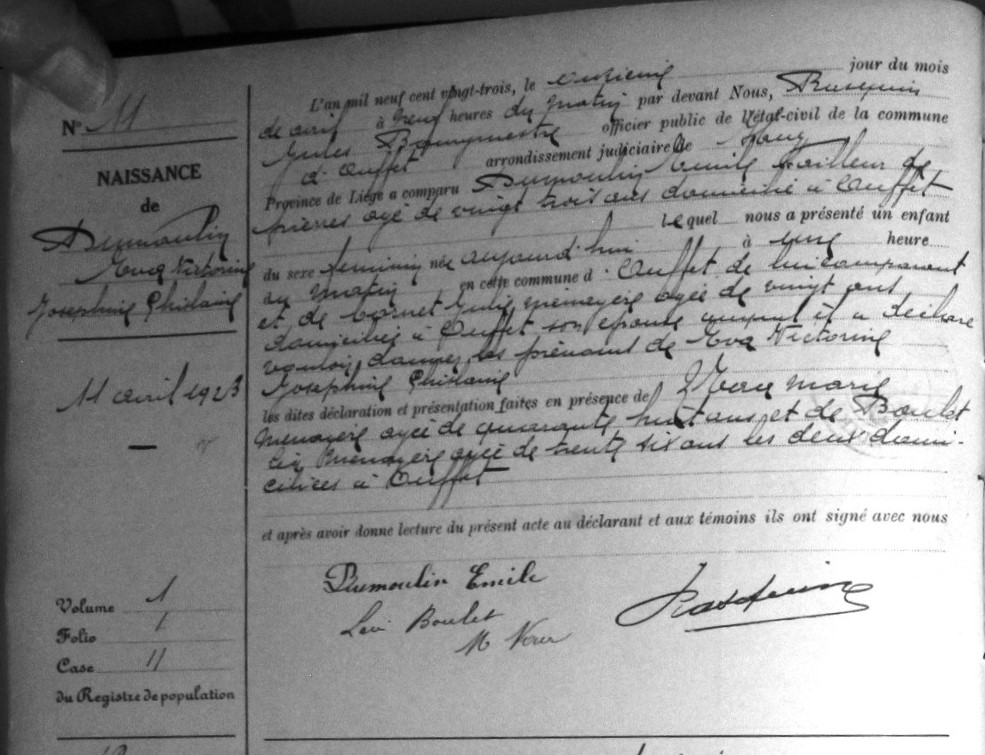 N° 11
NAISSANCE
de
Dumoulin
Eva Victorine
Josephine Ghislaine
11 avril 1923
Volume 1
Folio 1
Case 11
du Registre de population
L'an mil neuf cent vingt-trois, le onzieme jour du mois
de avril à neuf heures du matin par devant Nous,
Jules Bourgmestre officier public de l'état-civil de la commune
d'Ouffet arrondissement judiciaire de Huy
Province de Liège a comparu Dumoulin Emile tailleur de
pierres agé de vingt trois ans domicilié à Ouffet
lequel nous a présenté un enfant
du sexe feminin née aujourd'hui à une heure
du matin en cette commune d'Ouffet de lui comparant
et de Cornet Julie menagère agée de vingt ans
domiciliée à Ouffet son epouse et a déclaré
vouloir donner les prénoms de Eva Victorine
Josephine Ghislaine
les dites déclaration et présentation faites en présence de marie
menagère agée de quarante huit ans et de Boulet
menagère agée de trente six ans les deux domi-
ciliées à Ouffet
et après avoir donne lecture du présent acte au déclarant et aux témoins ils ont signé avec nous
Dumoulin Emile
Boulet
M